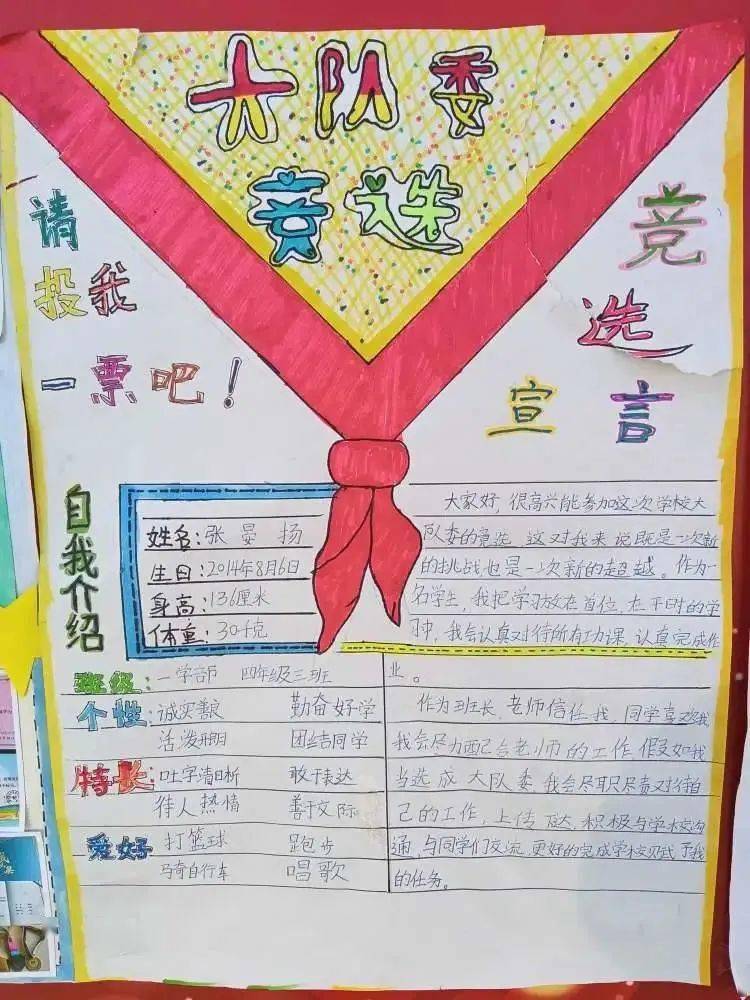 大队委
竞选
请
投我
一票吧！
竞
选
宣言
自我介绍
姓名：张晏扬
生日：2014年8月6日
身高：136厘米
体重：30千克
班级：一学部 四年级三班
个性：诚实善良 勤奋好学
活泼开朗 团结同学
特长：吐字清晰 敢于表达
待人热情 善于交际
爱好 打篮球 跑步
骑自行车 唱歌
大家好，很高兴能参加这次学校大
队委的竞选 这对我来说既是一次新
的挑战也是一次新的超越。作为一
名学生，我把学习放在首位，在平时的学
习中，我会认真对待所有功课，认真完成作
业。
作为班长，老师信任我，同学喜欢我
我会尽力配合老师的工作，假如我
当选成大队委，我会尽职尽责对待自
己的工作，上传下达，积极与学校沟
通，与同学们交流，更好的完成学校赋予我
的任务。